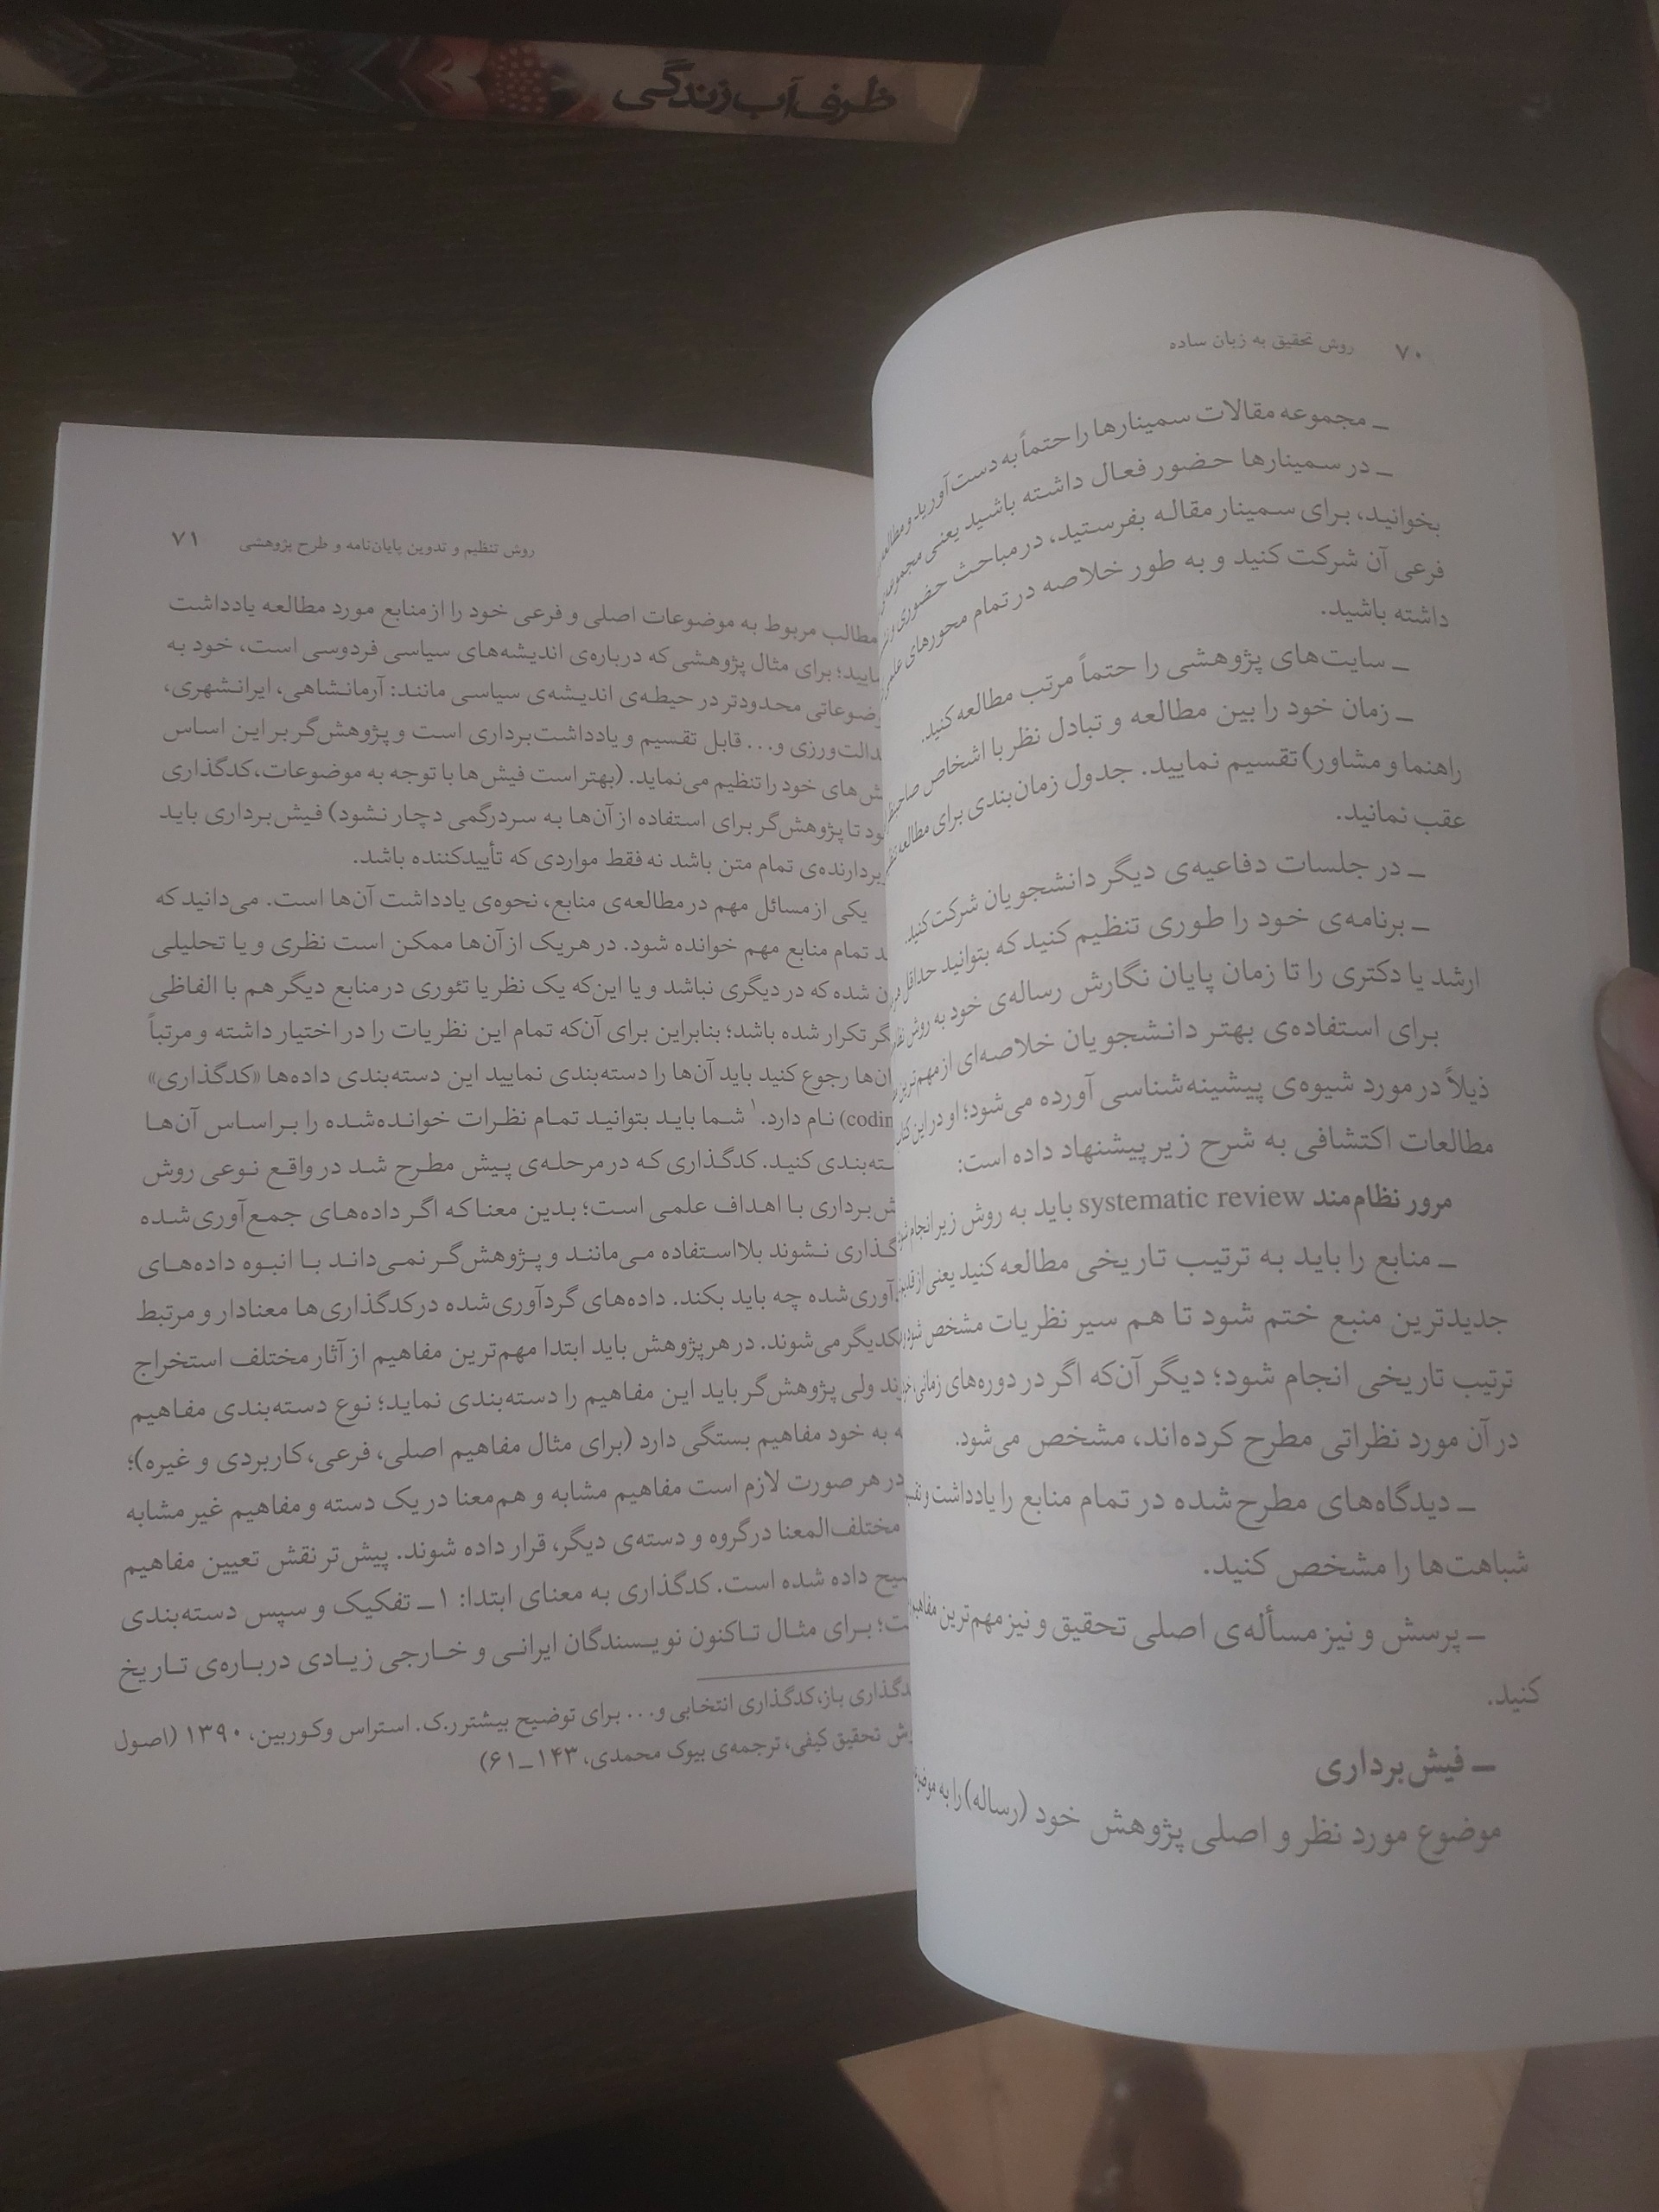 ظرف آب زندگی
۷۰ روش تحقیق به زبان ساده
ـ مجموعه مقالات سمینارها را حتماً به دست آورید و مطالعه
ـ در سمینارها حضور فعال داشته باشید یعنی
بخوانید، برای سمینار مقاله بفرستید، در مباحث حضوری
فرعی آن شرکت کنید و به طور خلاصه در تمام محورهای
داشته باشید.
ـ سایت‌های پژوهشی را حتماً مرتب مطالعه کنید.
ـ زمان خود را بین مطالعه و تبادل نظر با اشخاص
راهنما و مشاور) تقسیم نمایید. جدول زمان‌بندی برای مطالعه
عقب نمانید.
ـ در جلسات دفاعیه‌ی دیگر دانشجویان شرکت کنید.
ـ برنامه‌ی خود را طوری تنظیم کنید که بتوانید حداقل
ارشد یا دکتری را تا زمان پایان نگارش رساله‌ی خود به روش
برای استفاده‌ی بهتر دانشجویان خلاصه‌ای از مهم‌ترین
ذیلاً در مورد شیوه‌ی پیشینه‌شناسی آورده می‌شود؛ او در این
مطالعات اکتشافی به شرح زیر پیشنهاد داده است:
مرور نظام‌مند systematic review باید به روش زیر انجام شود
ـ منابع را باید به ترتیب تاریخی مطالعه کنید یعنی از
جدیدترین منبع ختم شود تا هم سیر نظریات مشخص شود
ترتیب تاریخی انجام شود؛ دیگر آن‌که اگر در دوره‌های زمانی
در آن مورد نظراتی مطرح کرده‌اند، مشخص می‌شود.
ـ دیدگاه‌های مطرح‌شده در تمام منابع را یادداشت و
شباهت‌ها را مشخص کنید.
ـ پرسش و نیز مسأله‌ی اصلی تحقیق و نیز مهم‌ترین
کنید.
ـ فیش‌برداری
موضوع مورد نظر و اصلی پژوهش خود (رساله) را به
روش تنظیم و تدوین پایان‌نامه و طرح پژوهشی ۷۱
مطالب مربوط به موضوعات اصلی و فرعی خود را از منابع مورد مطالعه یادداشت
برای مثال پژوهشی که درباره‌ی اندیشه‌های سیاسی فردوسی است، خود به
محدودتر در حیطه‌ی اندیشه‌ی سیاسی مانند: آرمانشاهی، ایرانشهری،
و... قابل تقسیم و یادداشت‌برداری است و پژوهش‌گر بر این اساس
های خود را تنظیم می‌نماید. (بهتر است فیش‌ها با توجه به موضوعات، کدگذاری
تا پژوهش‌گر برای استفاده از آن‌ها به سردرگمی دچار نشود) فیش‌برداری باید
تمام متن باشد نه فقط مواردی که تأییدکننده باشد.
یکی از مسائل مهم در مطالعه‌ی منابع، نحوه‌ی یادداشت آن‌ها است. می‌دانید که
تمام منابع مهم خوانده شود. در هریک از آن‌ها ممکن است نظری و یا تحلیلی
شده که در دیگری نباشد و یا این‌که یک نظر یا تئوری در منابع دیگر هم با الفاظی
تکرار شده باشد؛ بنابراین برای آن‌که تمام این نظریات را در اختیار داشته و مرتباً
رجوع کنید باید آن‌ها را دسته‌بندی نمایید این دسته‌بندی داده‌ها «کدگذاری»
(codin نام دارد.۱ شما باید بتوانید تمام نظرات خوانده‌شده را براساس آن‌ها
کنید. کدگذاری که در مرحله‌ی پیش مطرح شد در واقع نوعی روش
برداری با اهداف علمی است؛ بدین معنا که اگر داده‌های جمع‌آوری‌شده
گذاری نشوند بلااستفاده می‌مانند و پژوهش‌گر نمی‌داند با انبوه داده‌های
آوری‌شده چه باید بکند. داده‌های گردآوری‌شده در کدگذاری‌ها معنادار و مرتبط
یکدیگر می‌شوند. در هر پژوهش باید ابتدا مهم‌ترین مفاهیم از آثار مختلف استخراج
ولی پژوهش‌گر باید این مفاهیم را دسته‌بندی نماید؛ نوع دسته‌بندی مفاهیم
به خود مفاهیم بستگی دارد (برای مثال مفاهیم اصلی، فرعی، کاربردی و غیره)؛
در هر صورت لازم است مفاهیم مشابه و هم‌معنا در یک دسته و مفاهیم غیر مشابه
مختلف‌المعنا در گروه و دسته‌ی دیگر، قرار داده شوند. پیش‌تر نقش تعیین مفاهیم
داده شده است. کدگذاری به معنای ابتدا: ۱ـ تفکیک و سپس دسته‌بندی
برای مثال تاکنون نویسندگان ایرانی و خارجی زیادی درباره‌ی تاریخ
کدگذاری باز، کدگذاری انتخابی و... برای توضیح بیشتر ر.ک. استراس و کوربین، ۱۳۹۰ (اصول
روش تحقیق کیفی، ترجمه‌ی بیوک محمدی، ۱۴۳ـ۶۱)